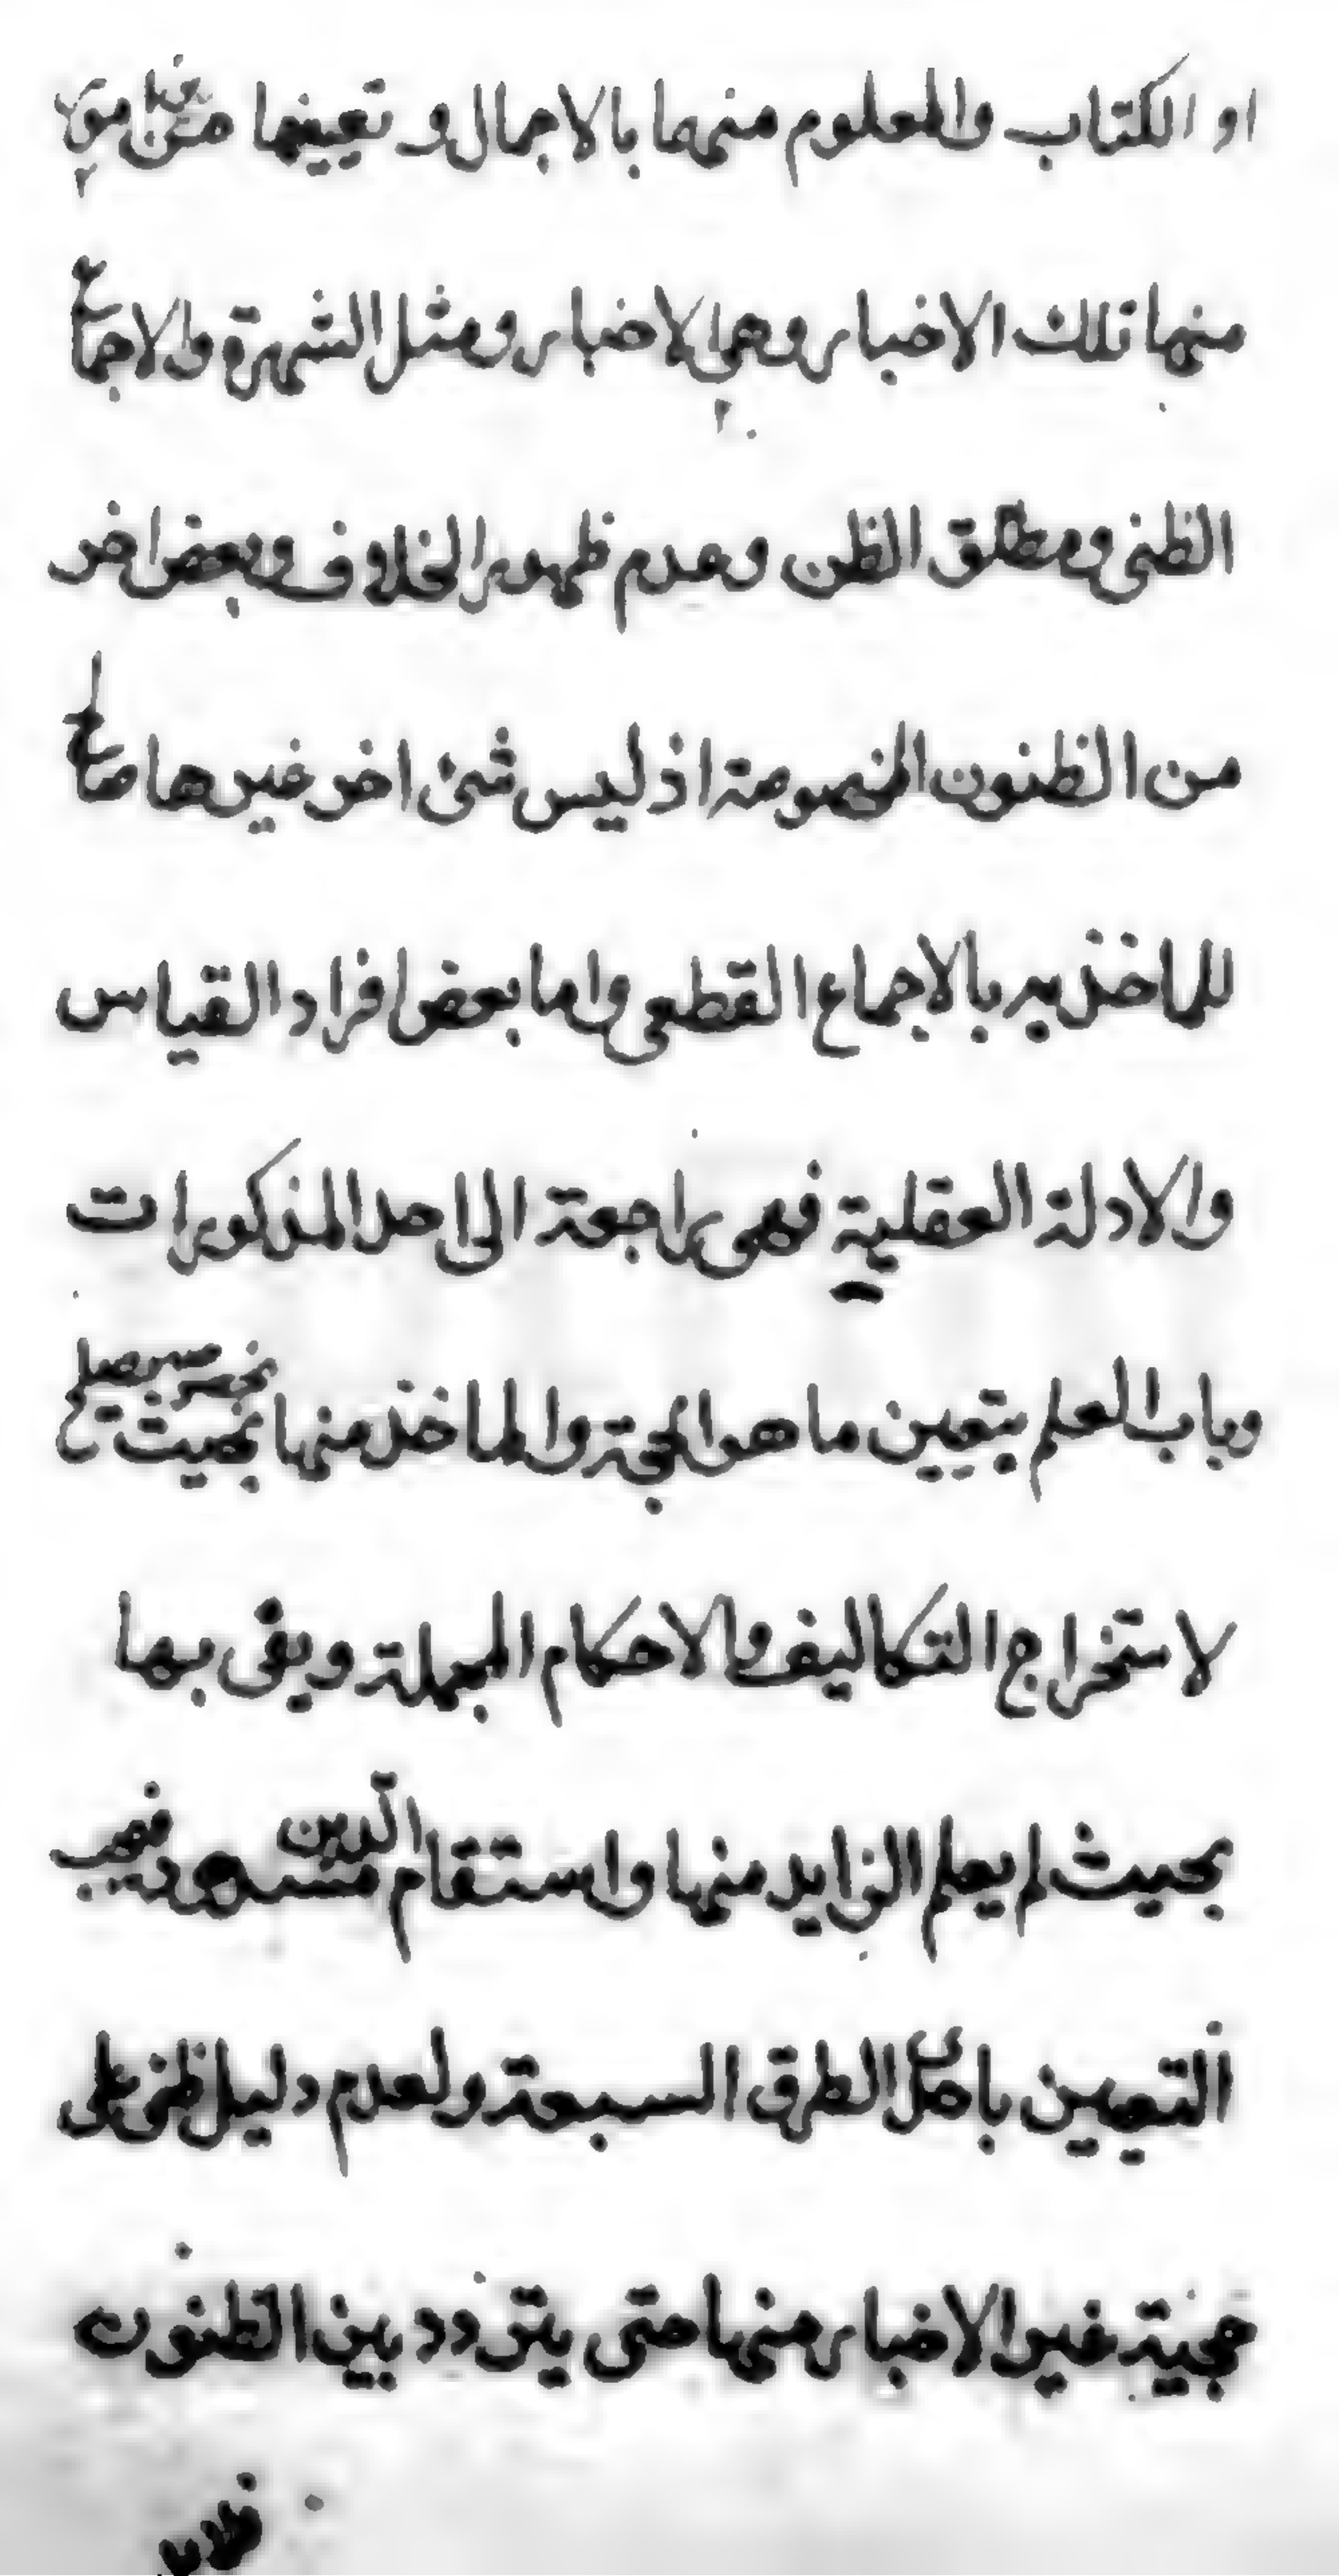 او الكتاب والمعلوم منهما بالاجمال و تعيينها
منها تلك الاخبار وهي الاخبار ومثل الشهرة والاجماع
الظنى ومطلق الظن وعدم ظهور الخلاف وبعض اخر
من الظنون المخصوصة اذ ليس شئ اخر غيرها صالح
للماخذيه بالاجماع القطعى واما بعض افراد القياس
والادلة العقلية فهى راجعة الى احد المذكورات
وباب العلم بتعيين ما هو الحجة والماخذ منها بحيث
لاستخراج التكاليف والاحكام المجملة ويفى بها
بحيث لم يعلم الزايد منها واستقام الدين مسدود فيجب
التعيين باصل الطرق السبعة ولعدم دليل ظنى على
حجية غير الاخبار منها حتى يتردد بين الظنون